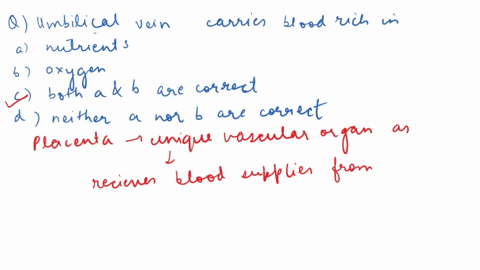 Q) Umbilical vein carries blood rich in
a) nutrients
b) oxygen
c) both a & b are correct
d) neither a nor b are correct
Placenta → unique vascular organ as
↓
recieves blood supplies from